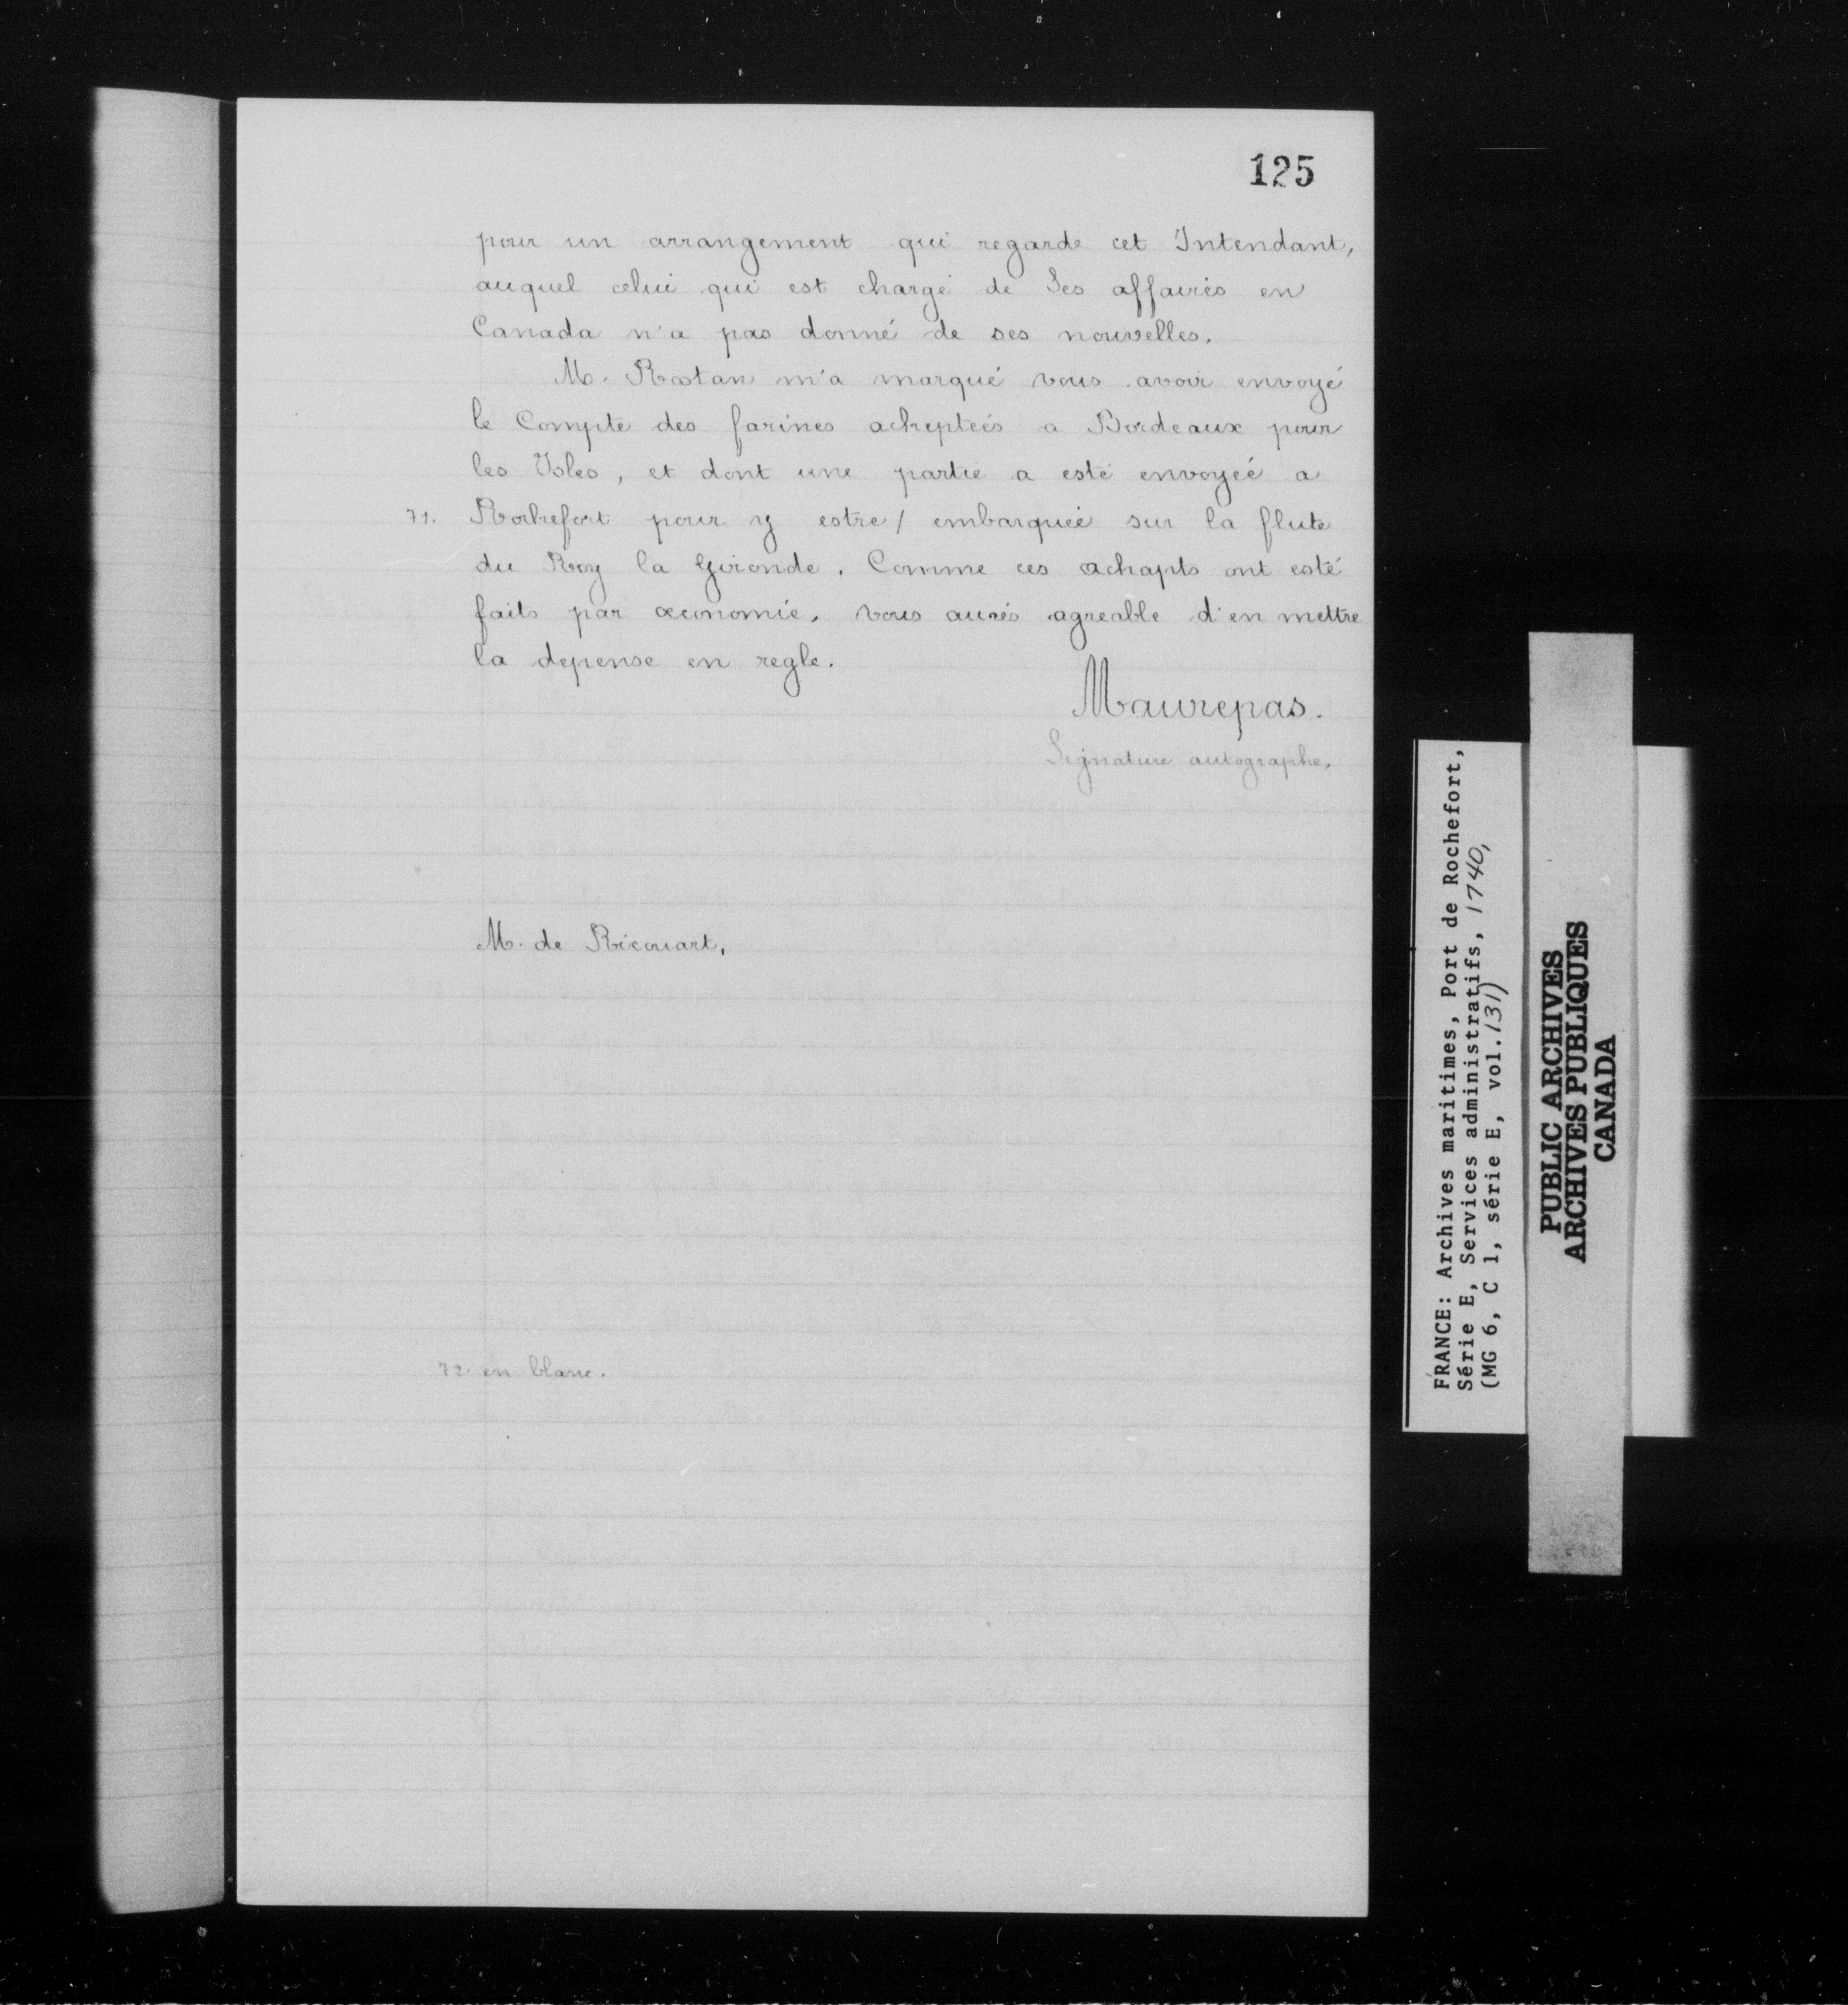 125
pour un arrangement qui regarde cet Intendant,
auquel celui qui est chargé de Ses affaires en
Canada n'a pas donné de ses nouvelles.
M. Rostan m'a marqué vous avoir envoyé
le Compte des farines acheptées a Bordeaux pour
les Isles, et dont une partie a esté envoyée a
71. Rochefort pour y estre / embarquée sur la flute
du Roy la Gironde. Comme ces achapts ont esté
faits par œconomie, vous aurés agreable d'en mettre
la depense en regle.
Maurepas.
Signature autographe.
M. de Ricouart.
72. en blanc.
FRANCE: Archives maritimes, Port de Rochefort,
Série E, Services administratifs, 1740,
(MG 6, C 1, série E, vol. 131)
PUBLIC ARCHIVES
ARCHIVES PUBLIQUES
CANADA